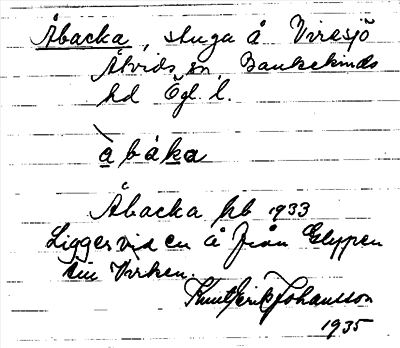 Åbacka, stuga å Viresjö
Åtvids sn, Bankekinds
hd Ögl. l.
àbáka
Åbacka hb 1933
Ligger vid en å från Glypen
till Virken.
Knut Erik Johansson
1935